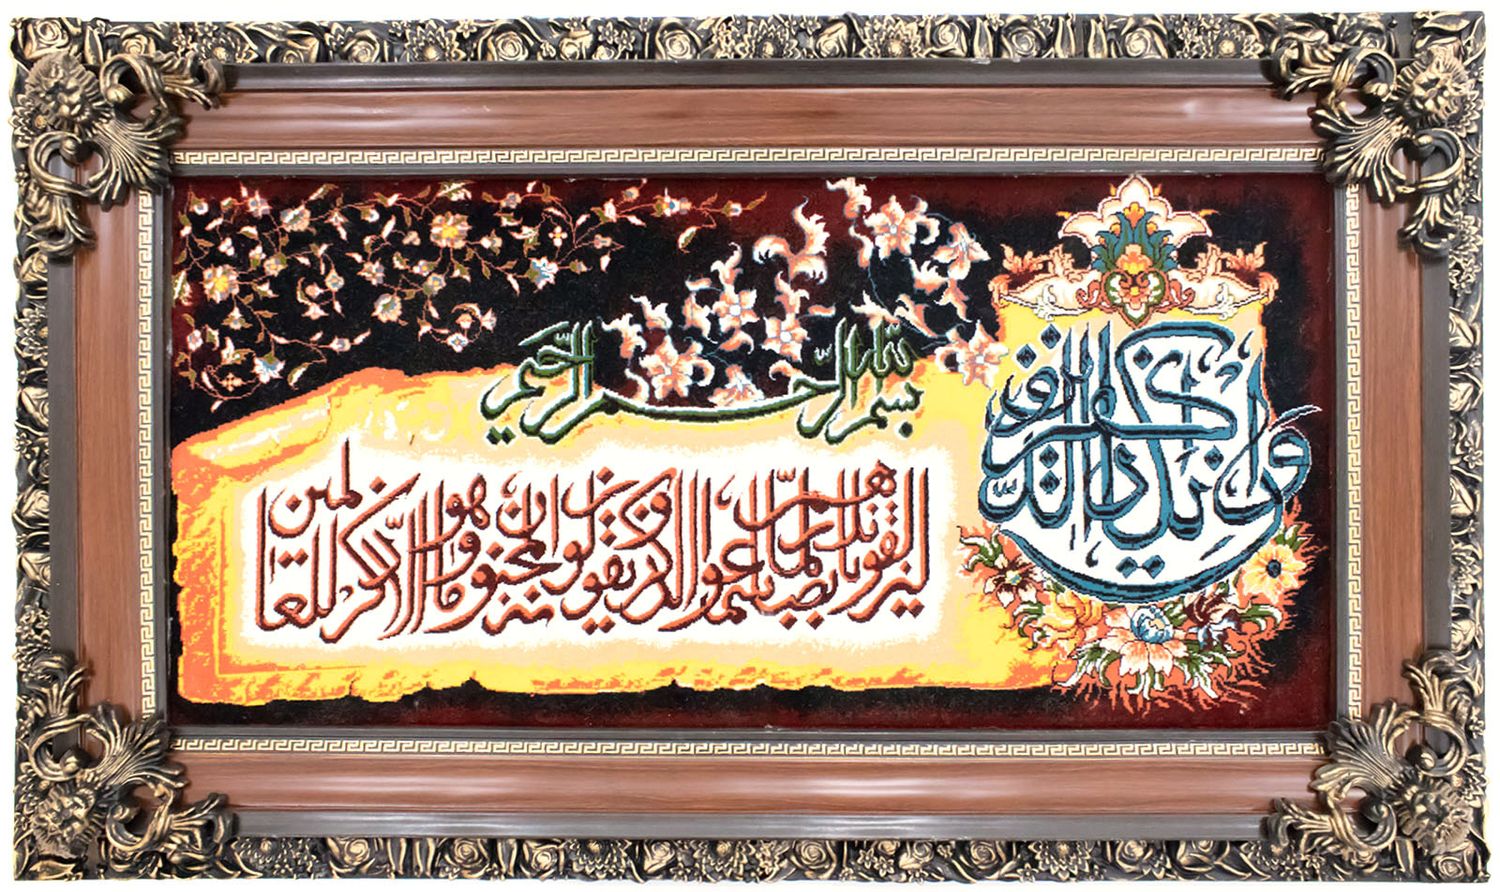 بسم الله الرحمن الرحیم
وان یکاد الذین کفروا
لیزلقونک بابصارهم لما سمعوا الذکر و یقولون انه لمجنون و ما هو الا ذکر للعالمین